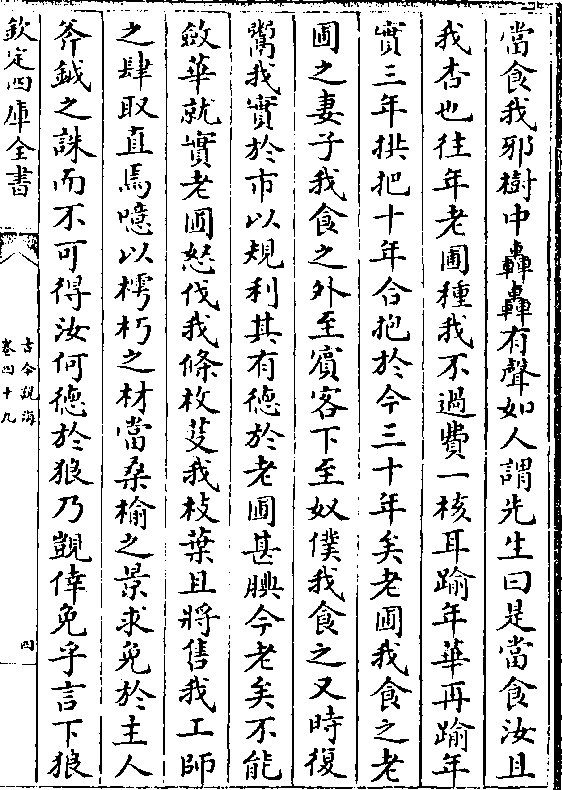 當食我邪樹中轟轟有聲如人謂先生曰是當食汝且
我杏也往年老圃種我不過費一核耳踰年華再踰年
實三年拱把十年合抱於今三十年矣老圃我食之老
圃之妻子我食之外至賔客下至奴僕我食之又時復
鬻我實於市以規利其有徳於老圃甚腆今老矣不能
斂華就實老圃怒伐我條枚芟我枝葉且將售我工師
之肆取直焉噫以樗朽之材當桑榆之景求免於主人
斧鉞之誅而不可得汝何徳於狼乃覬倖免乎言下狼
欽定四庫全書
古今說海
卷四十九
四